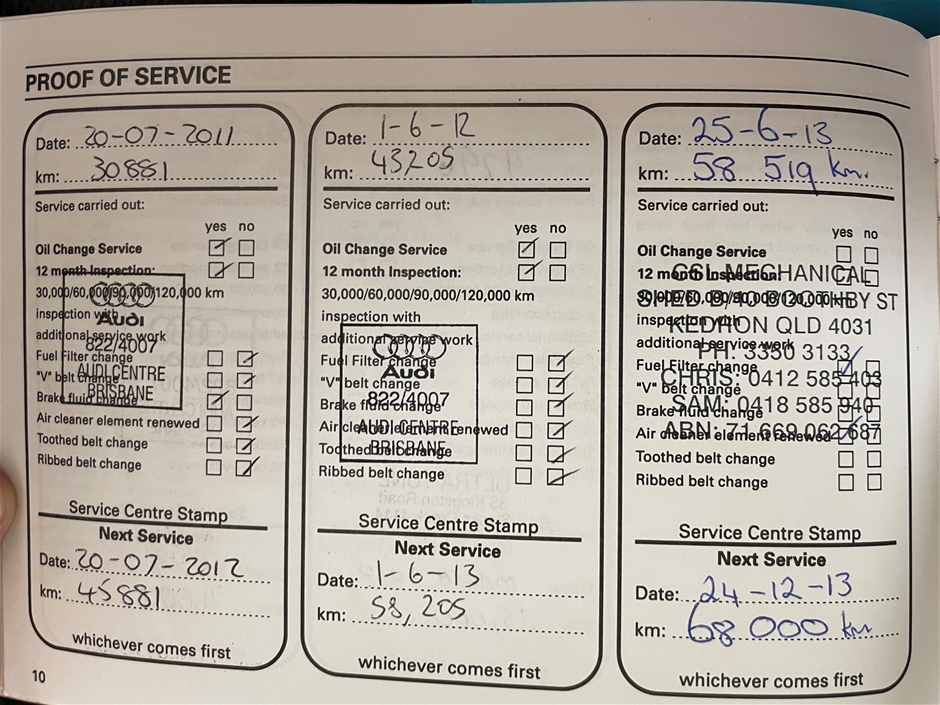 PROOF OF SERVICE
Date: 20-07-2011
km: 30881
Service carried out:
yes no
Oil Change Service
12 month Inspection:
30,000/60,000/90,000/120,000 km
inspection with
additional service work
Fuel Filter change
"V" belt change
Brake fluid change
Air cleaner element renewed
Toothed belt change
Ribbed belt change
Audi
822/4007
AUDI CENTRE
BRISBANE
Service Centre Stamp
Next Service
Date: 20-07-2012
km: 45881
whichever comes first
10
Date: 1-6-12
km: 43205
Service carried out:
yes no
Oil Change Service
12 month Inspection:
30,000/60,000/90,000/120,000 km
inspection with
additional service work
Fuel Filter change
"V" belt change
Brake fluid change
Air cleaner element renewed
Toothed belt change
Ribbed belt change
Audi
822/4007
AUDI CENTRE
BRISBANE
Service Centre Stamp
Next Service
Date: 1-6-13
km: 58,205
whichever comes first
Date: 25-6-13
km: 58 519 km.
Service carried out:
yes no
Oil Change Service
12 month Inspection:
30,000/60,000/90,000/120,000 km
inspection with
additional service work
Fuel Filter change
"V" belt change
Brake fluid change
Air cleaner element renewed
Toothed belt change
Ribbed belt change
MECHANICAL
KEDRON QLD 4031
PH: 3350 3133
CHRIS: 0412 585 403
SAM: 0418 585 940
ABN: 71 669 062 687
Service Centre Stamp
Next Service
Date: 24-12-13
km: 68 000 km
whichever comes first